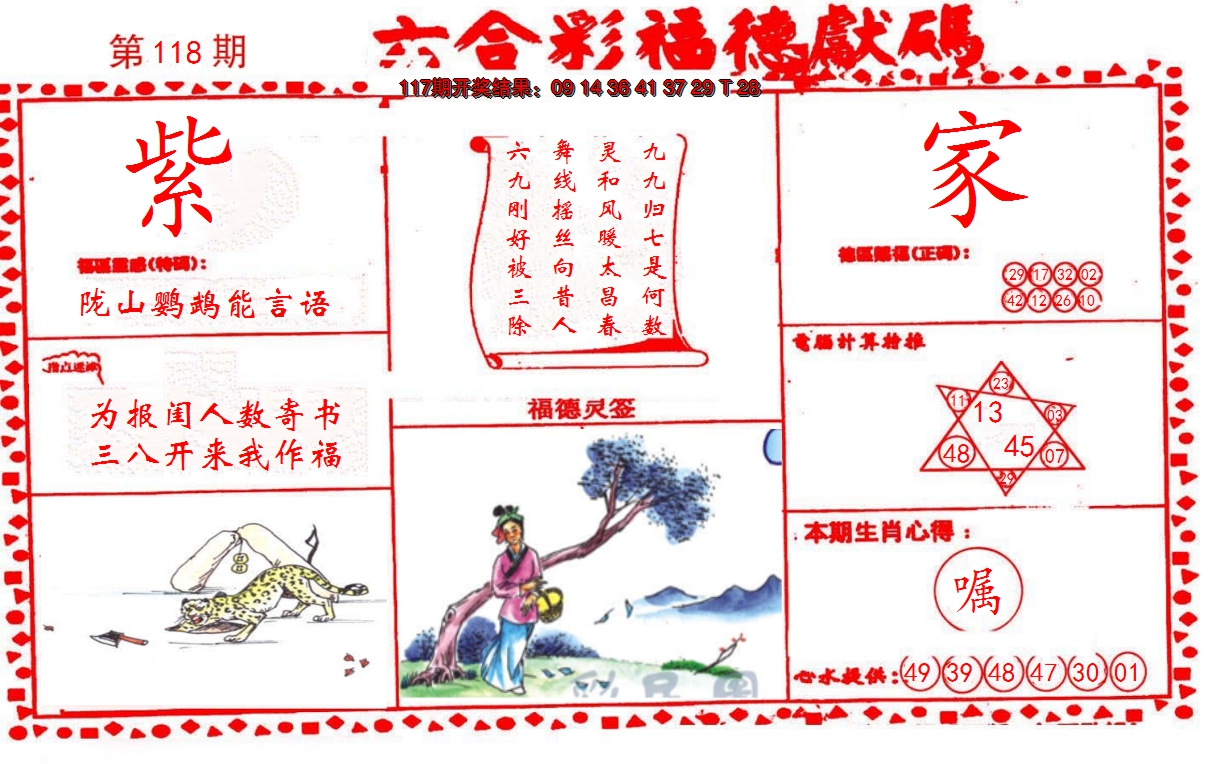 第118期
六合彩福德獻碼
117期开奖结果：09 14 36 41 37 29 T 28
紫
福區靈感(特碼)：
陇山鹦鹉能言语
指点迷津
为报闺人数寄书
三八开来我作福
九九归七是何数
灵和风暖太昌春
舞线摇丝向昔人
六九刚好被三除
福德灵签
家
德區賜福(正碼)：
29 17 32 02
42 12 26 10
電腦计算持推
23
11 13 03
48 45 07
29
本期生肖心得：
嘱
心水提供：49 39 48 47 30 01